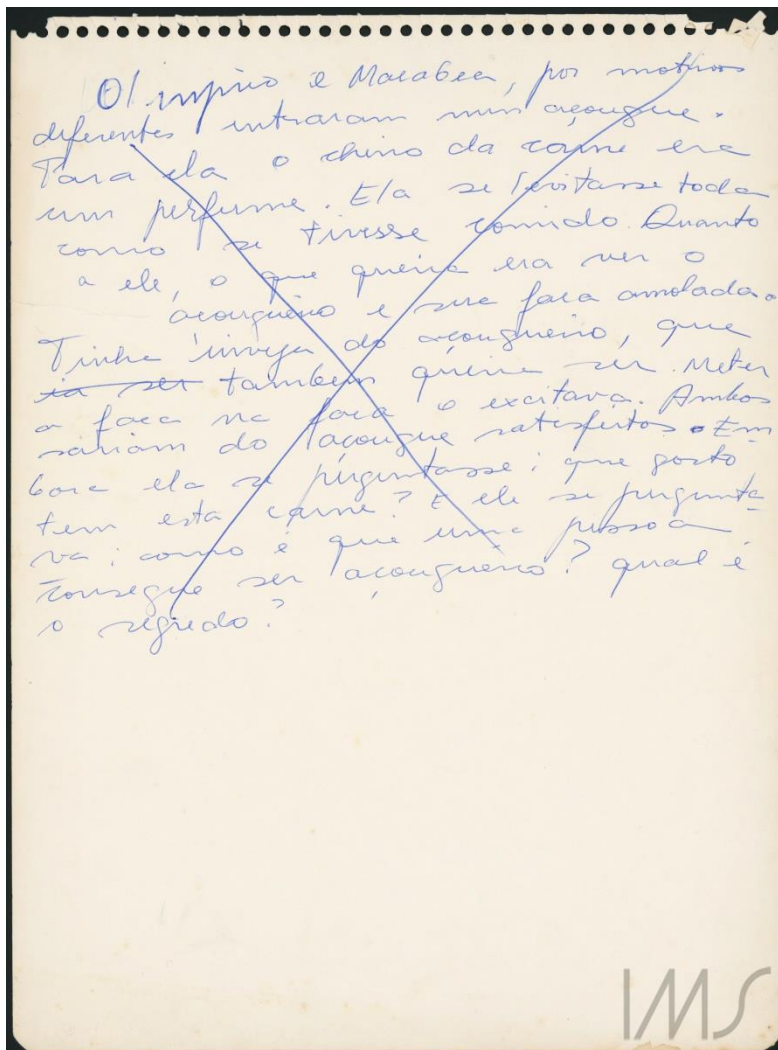 Olímpico e Macabea, por motivos
diferentes entraram num açougue.
Para ela o cheiro da carne era
um perfume. Ela se levitasse toda
como se tivesse comido. Quanto
a ele, o que queria era ver o
açougueiro e sua faca amolada.
Tinha inveja do açougueiro, que
ia ser também queria ser. Meter
a faca na faca o excitava. Ambos
sairiam do açougue satisfeitos. Em-
bora ela se perguntasse: que gosto
tem esta carne? E ele se pergunta-
va: como é que uma pessoa
consegue ser açougueiro? qual é
o segredo?
IMS